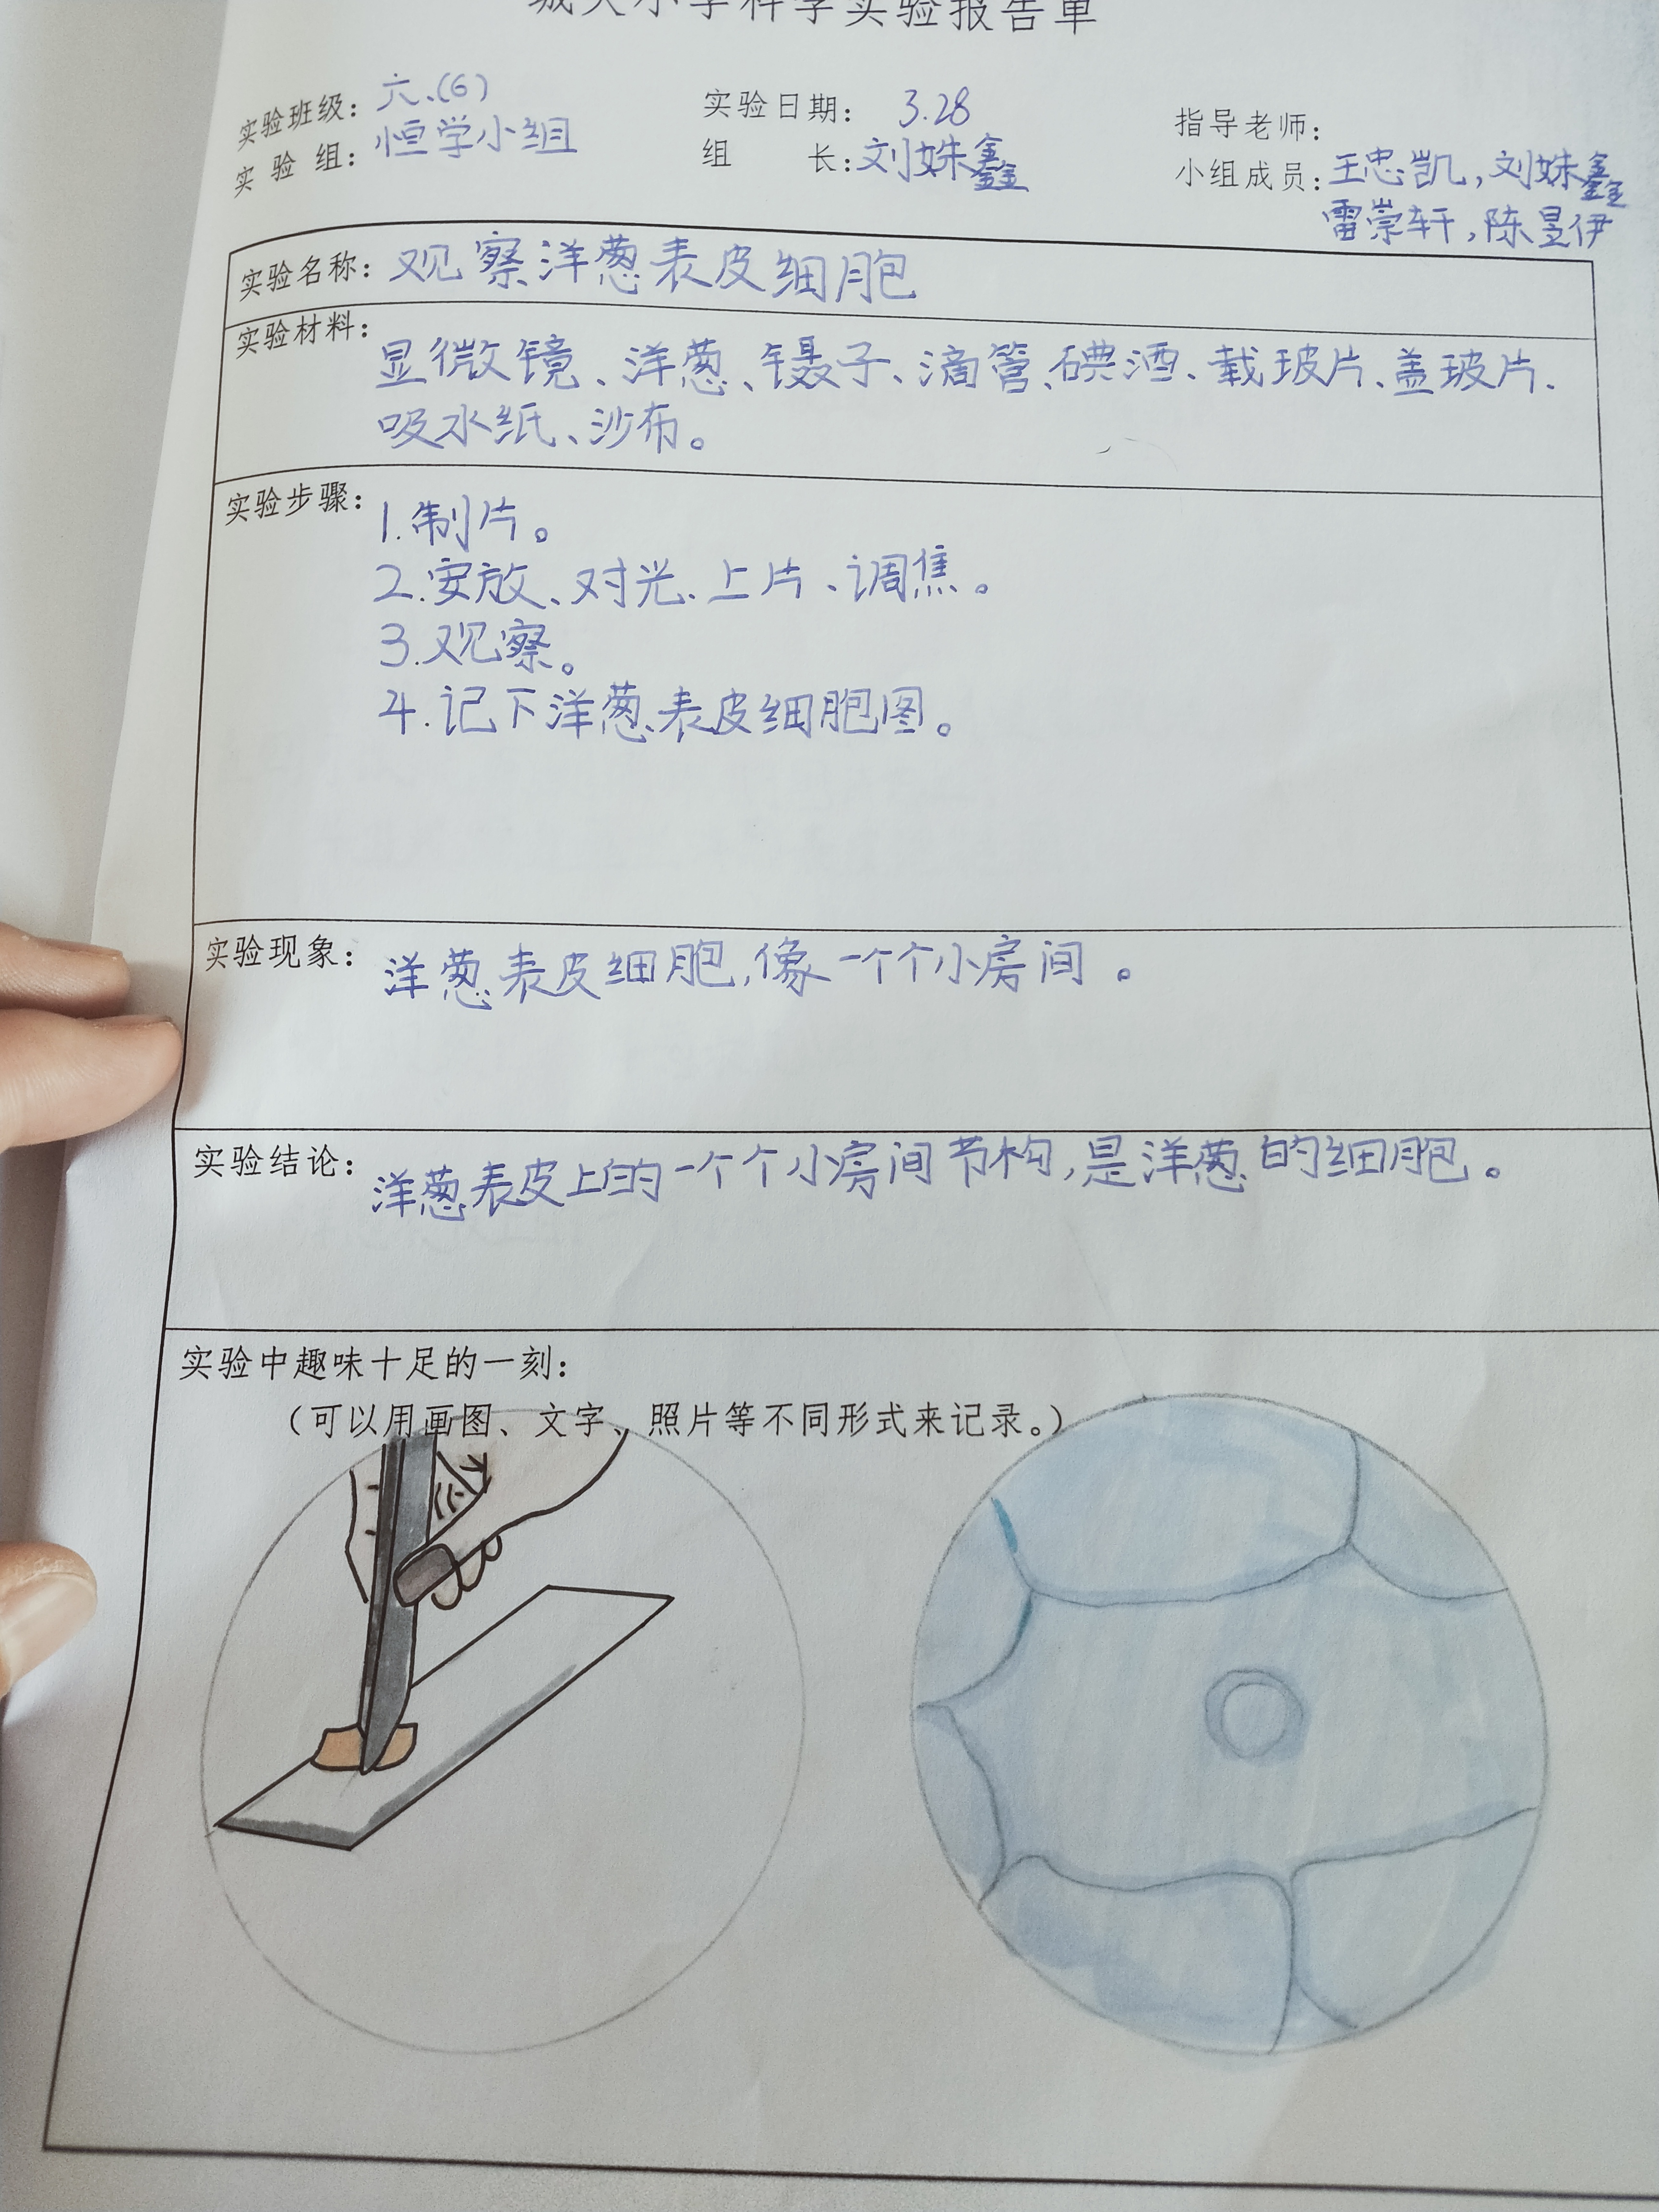 城关小学科学实验报告单
实验班级：六.(6) 实验日期：3.28 指导老师：
实验组：恒学小组 组长：刘姝鑫 小组成员：王忠凯，刘姝鑫
雷崇轩，陈昱伊
实验名称：观察洋葱表皮细胞
实验材料：显微镜、洋葱、镊子、滴管、碘酒、载玻片、盖玻片、
吸水纸、沙布。
实验步骤：1.制片。
2.安放、对光、上片、调焦。
3.观察。
4.记下洋葱表皮细胞图。
实验现象：洋葱表皮细胞，像一个个小房间。
实验结论：洋葱表皮上的一个个小房间节构，是洋葱的细胞。
实验中趣味十足的一刻：
（可以用画图、文字、照片等不同形式来记录。）